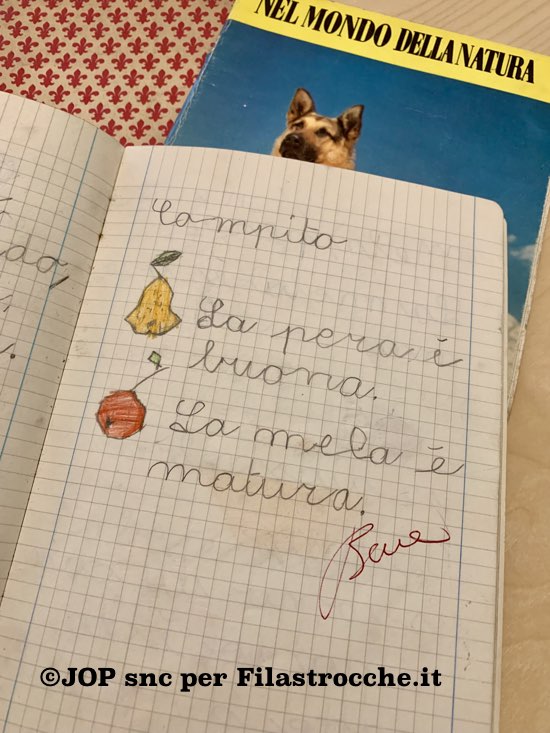 NEL MONDO DELLA NATURA
Compito
La pera è
buona.
La mela è
matura.
Bene
©JOP snc per Filastrocche.it